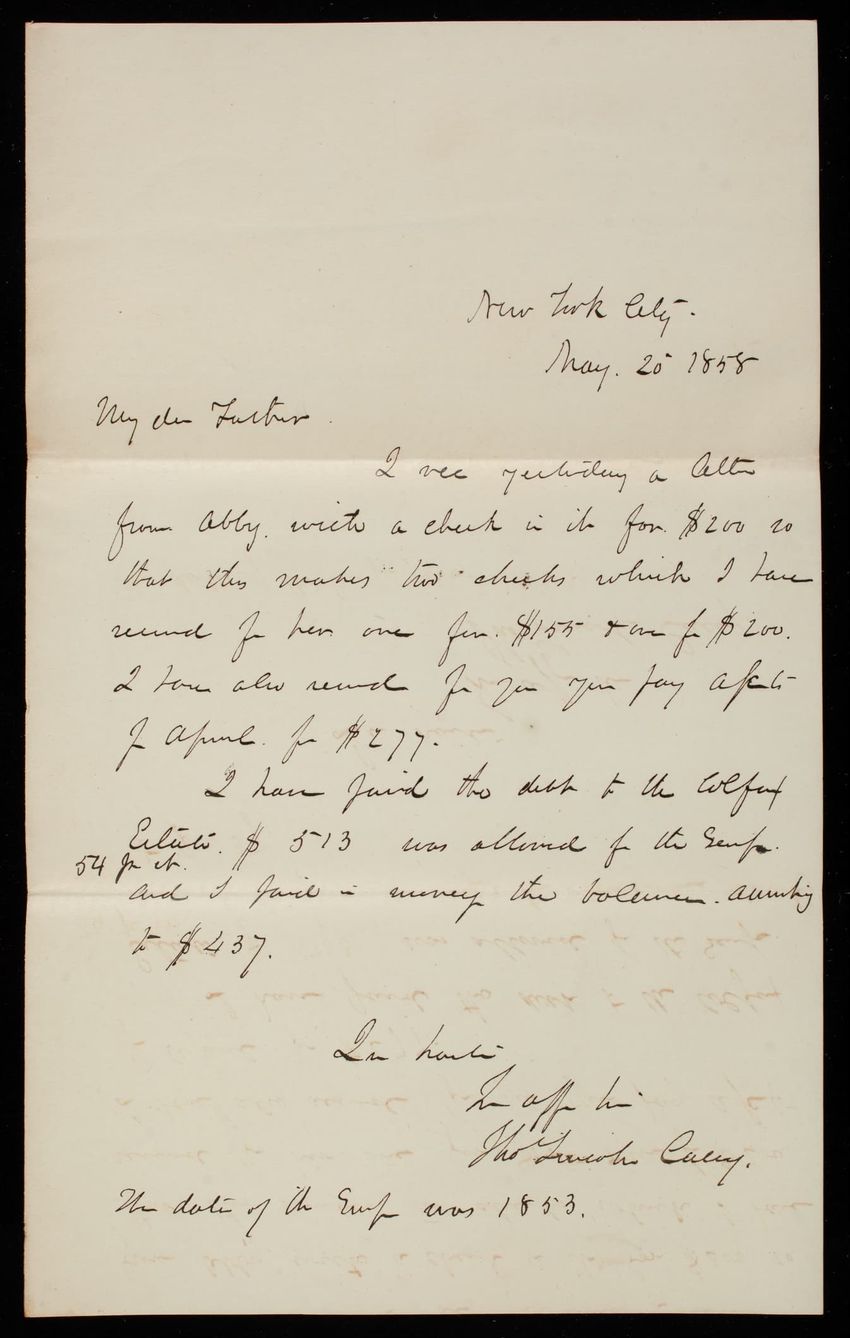 New York City.
May. 25 1858
My dear Father.
I rec yesterday a letter
from Abby. with a check in it for. $200 so
that this makes two checks which I have
received for her. one for. $155 & one for $200.
I have also received for you your pay accts
for April. for $277.
I have paid the debt to the Colfax
Estate. $ 513 was allowed for the
54 for it.
and I paid in money the balance. amounting
to $437.
In haste
Yr aff Son
Tho Lincoln Casey.
The date of the was 1853.